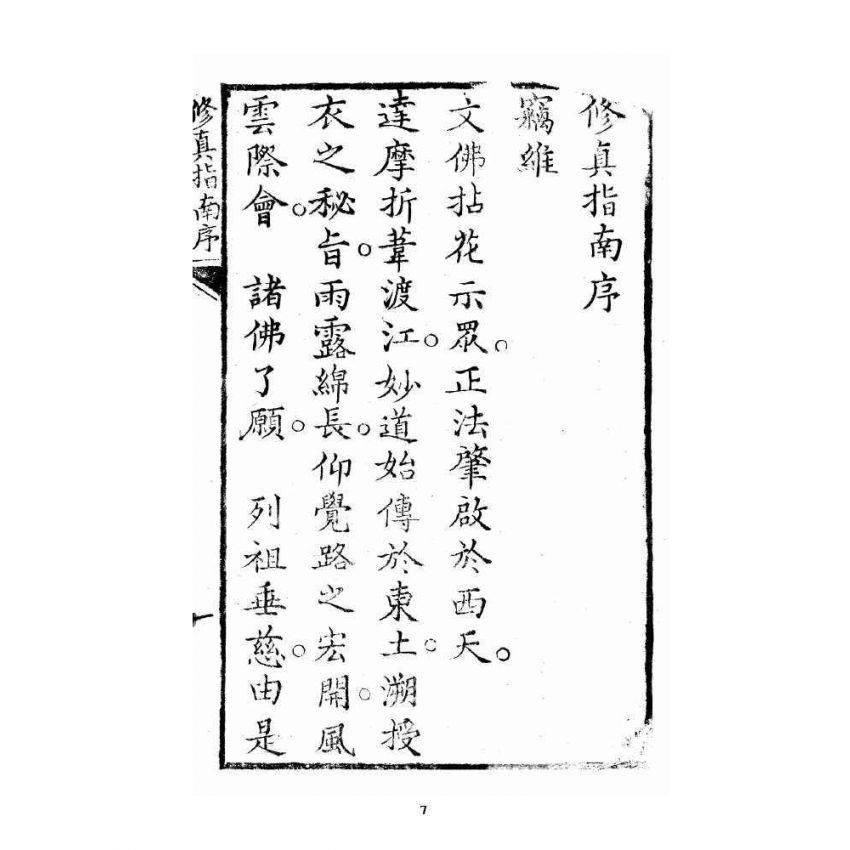 修真指南序
竊維
文佛拈花示眾。正法肇啟於西天。
達摩折葦渡江。妙道始傳於東土。溯授
衣之秘旨。雨露綿長。仰覺路之宏開。風
雲際會。諸佛了願。列祖垂慈。由是
修真指南序
一
7